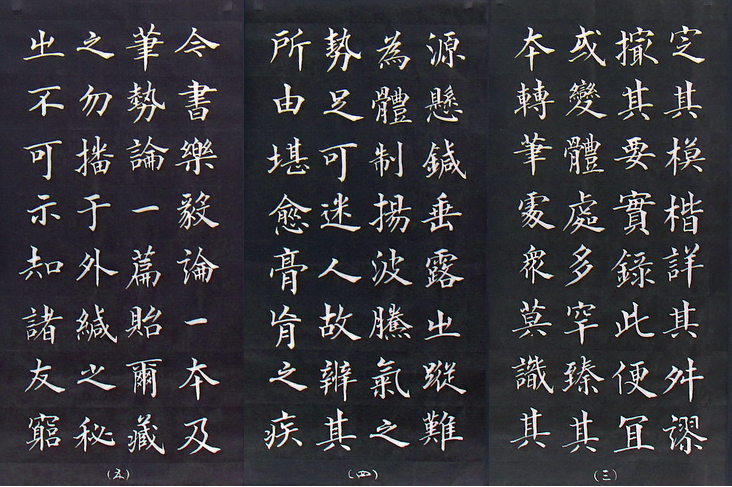 定其模楷詳其舛謬
撮其要實錄此便宜
或變體處多罕臻其
本轉筆處衆莫識其
(三)
源懸鍼垂露㞢蹤難
為體制揚波騰氣之
勢足可迷人故辨其
所由堪愈膏肓之疾
(四)
今書樂毅論一本及
筆勢論一篇貽爾藏
之勿播于外緘之秘
㞢不可示知諸友窮
(五)